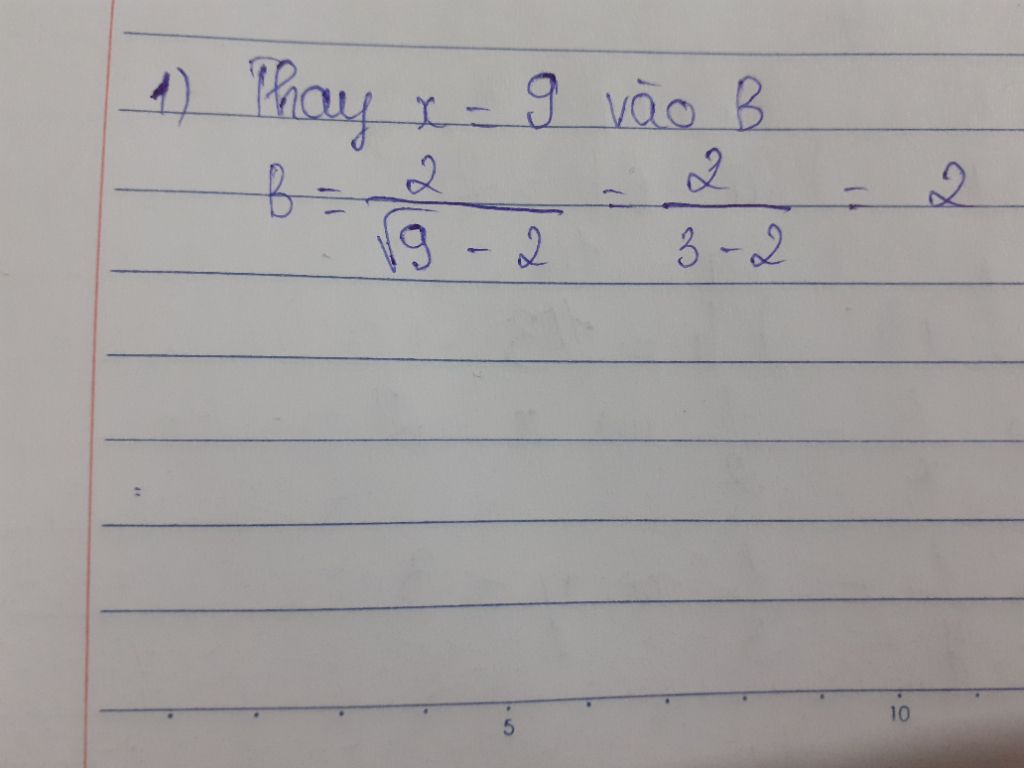 1) Thay x = 9 vào B
B = 2/(√9 - 2) = 2/(3 - 2) = 2
5 10